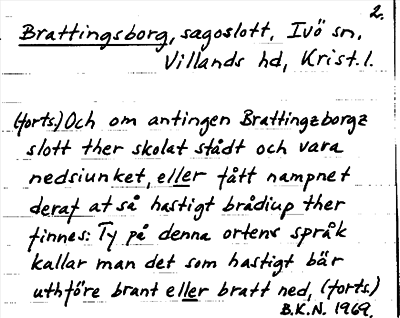 2.
Brattingsborg, sagoslott, Ivö sn,
Villands hd, Krist. l.
(forts.) Och om antingen Brattingzborgz
slott ther skolat stådt och vara
nedsiunket, eller fått nampnet
deraf at så hastigt brådiup ther
finnes: Ty på denna ortens språk
kallar man det som hastigt bär
uthföre brant eller bratt ned, (forts.)
B.K.N. 1969.